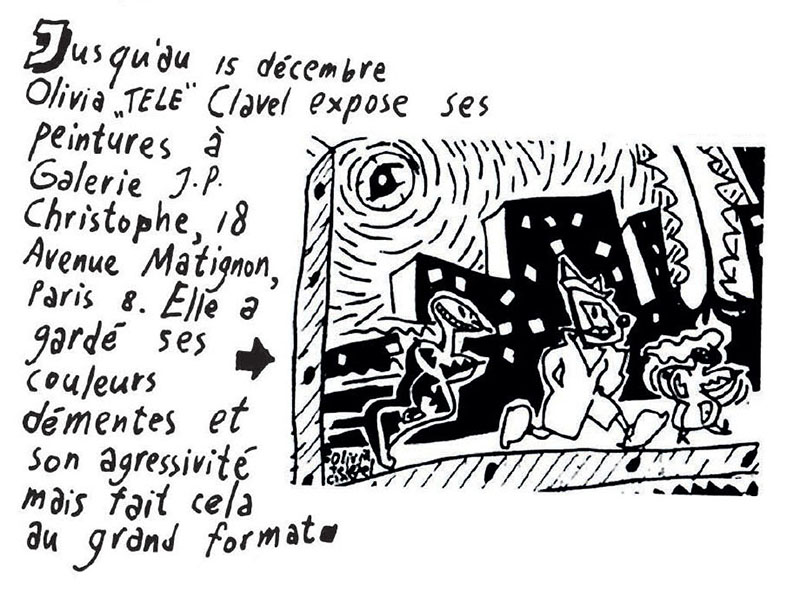 Jusqu'au 15 décembre
Olivia „TELE" Clavel expose ses
peintures à
Galerie J.P.
Christophe, 18
Avenue Matignon,
Paris 8. Elle a
gardé ses
couleurs
démentes et
son agressivité
mais fait cela
au grand format.
Olivia